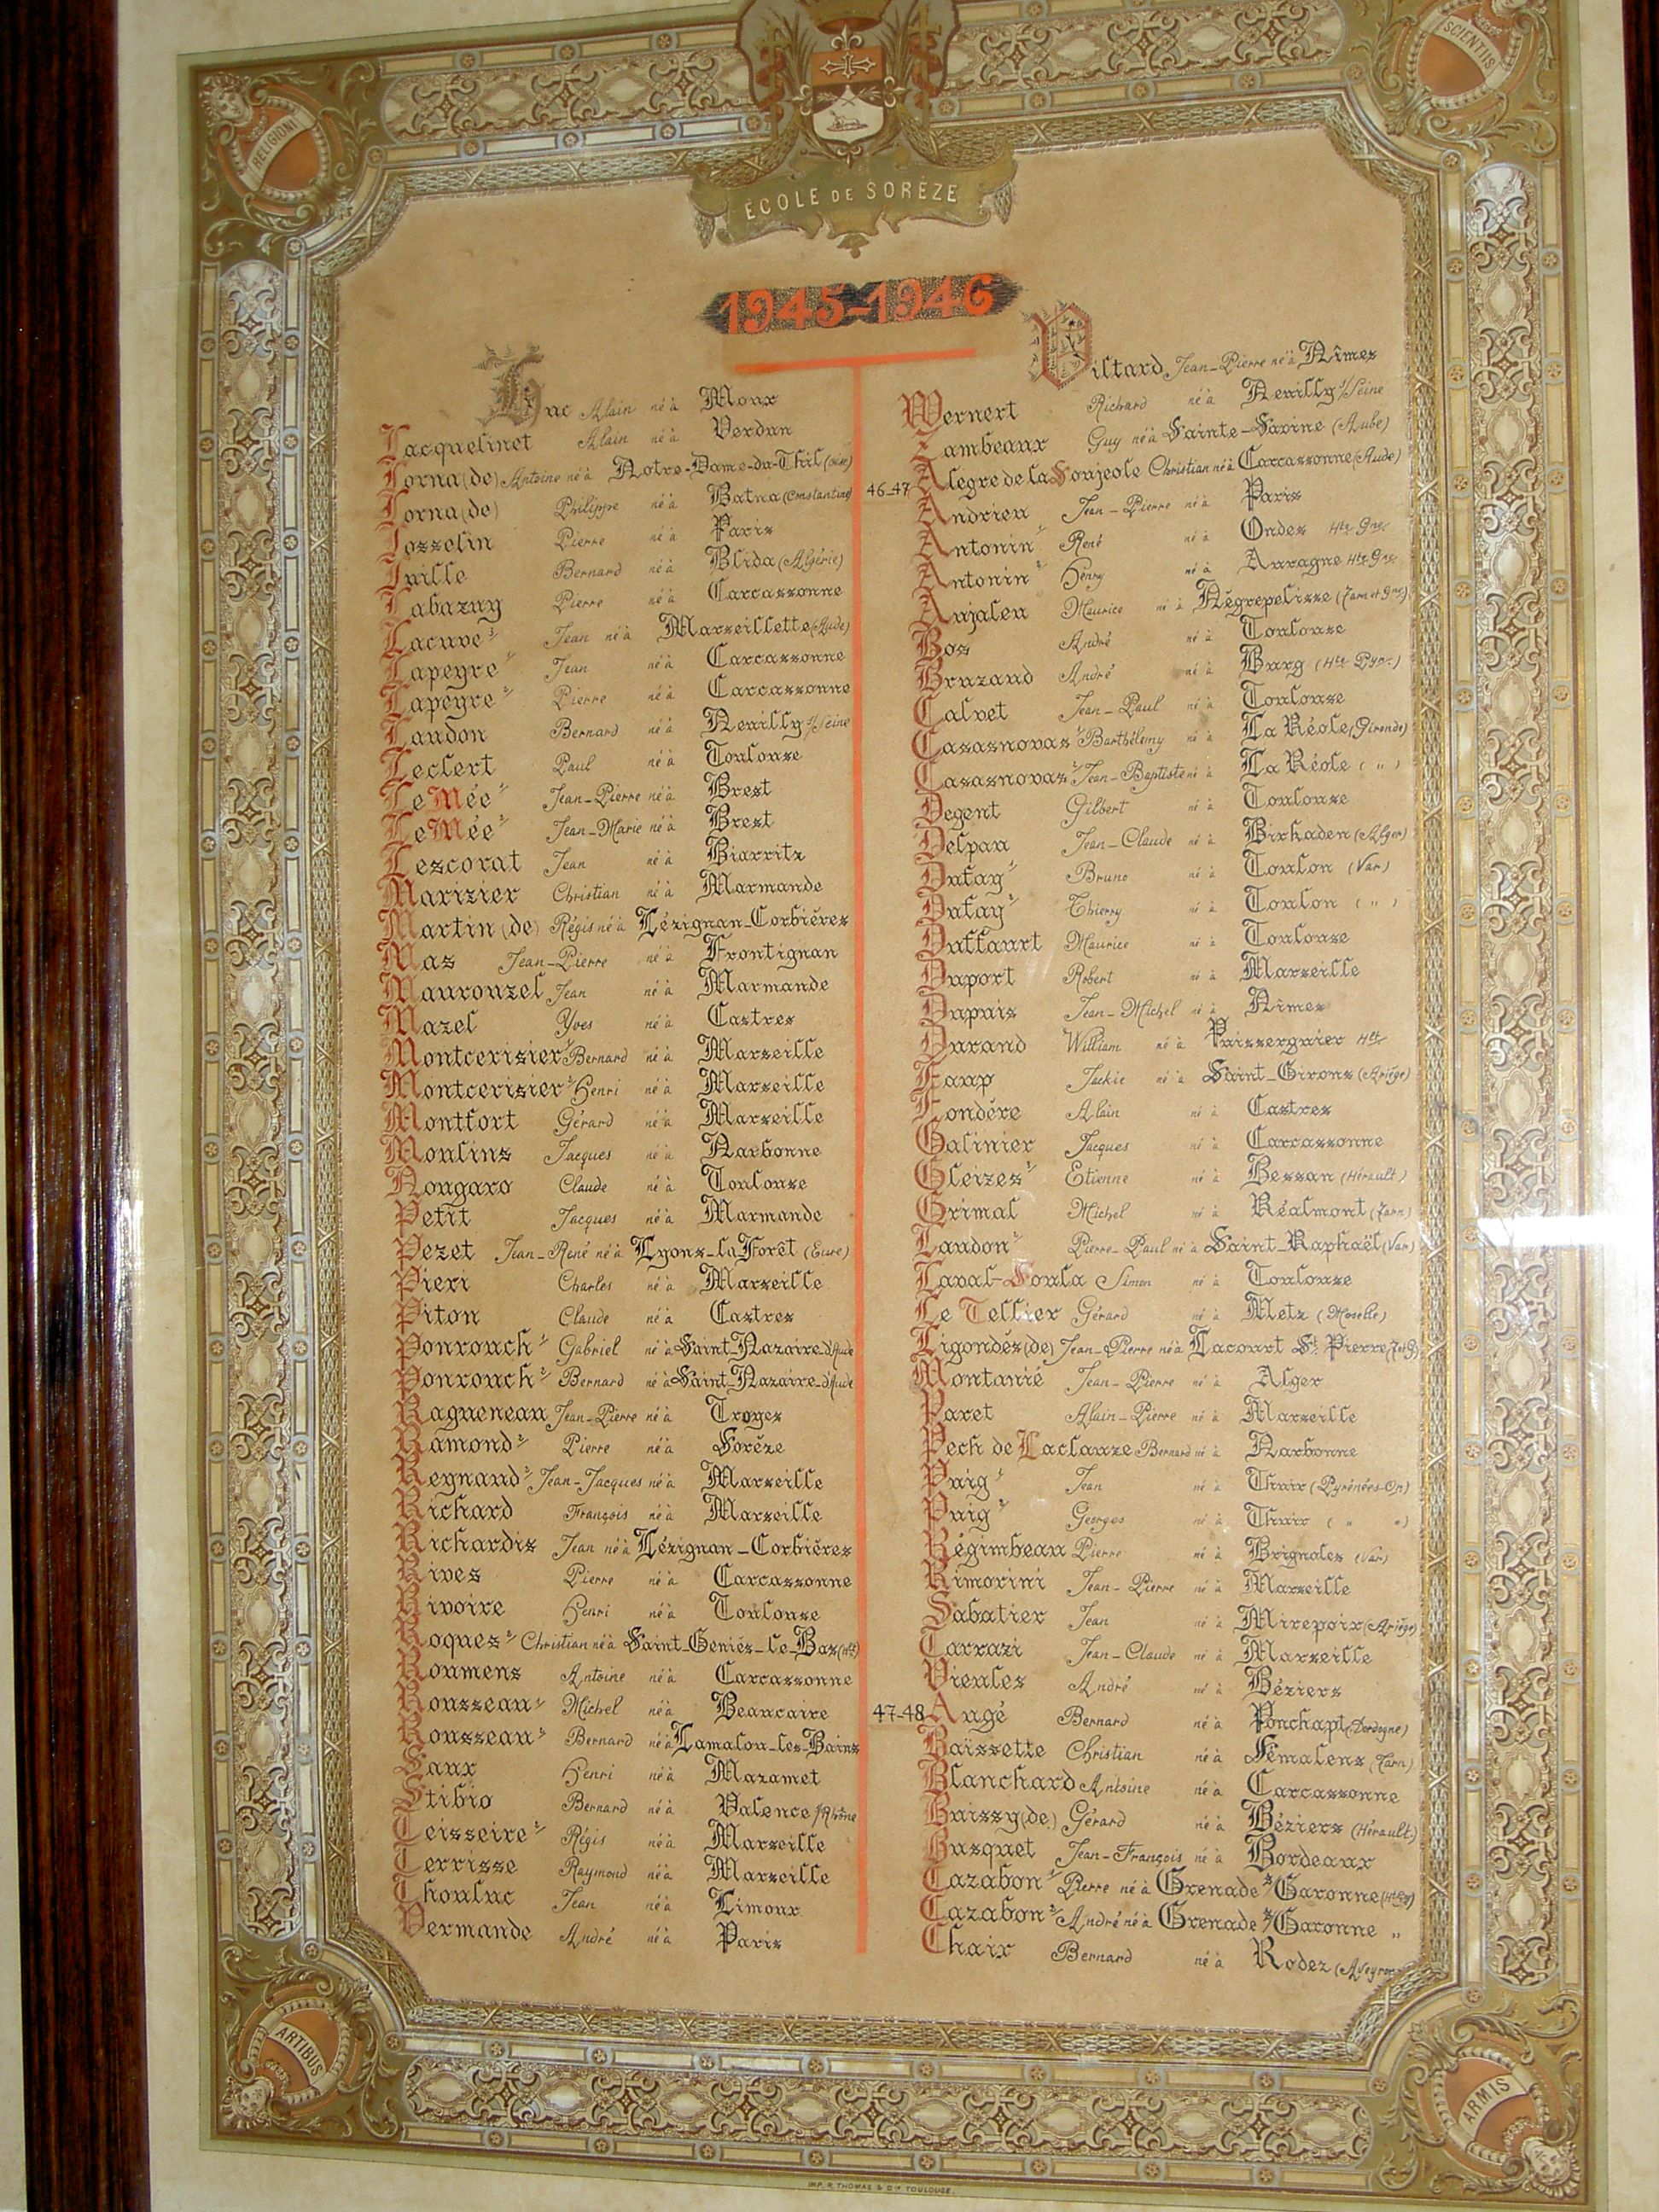 RELIGIONI
SCIENTIIS
ÉCOLE DE SORÈZE
1945-1946
Huc Alain né à Moux
Jacquelinet Alain né à Verdun
Jorna (de) Antoine né à Notre-Dame-du-Thil (Oise)
Jorna (de) Philippe né à Batna (Constantine)
Josselin Pierre né à Paris
Juille Bernard né à Blida (Algérie)
Labazuy Pierre né à Carcassonne
Lacuve Jean né à Marseillette (Aude)
Lapeyre 1/ Jean né à Carcassonne
Lapeyre 2/ Pierre né à Carcassonne
Laudon Bernard né à Neuilly s/Seine
Leclert Paul né à Toulouse
Le Mée 1/ Jean-Pierre né à Brest
Le Mée 2/ Jean-Marie né à Brest
Lescorat Jean né à Biarritz
Marizier Christian né à Marmande
Martin (de) Régis né à Lézignan-Corbières
Mas Jean-Pierre né à Frontignan
Maurouzel Jean né à Marmande
Mazel Yves né à Castres
Montcerisier 1/ Bernard né à Marseille
Montcerisier 2/ Henri né à Marseille
Montfort Gérard né à Marseille
Moulins Jacques né à Narbonne
Nougaro Claude né à Toulouse
Petit Jacques né à Marmande
Pezet Jean-René né à Lyons-la Forêt (Eure)
Pieri Charles né à Marseille
Piton Claude né à Castres
Ponrouch 1/ Gabriel né à Saint-Nazaire-d'Aude
Ponrouch 2/ Bernard né à Saint-Nazaire-d'Aude
Ragueneau Jean-Pierre né à Troyes
Ramond 2/ Pierre né à Sorèze
Regnaud 2/ Jean-Jacques né à Marseille
Richard François né à Marseille
Richardis Jean né à Lézignan-Corbières
Rives Pierre né à Carcassonne
Rivoire Henri né à Toulouse
Roques 2/ Christian né à Saint-Geniès-le-Bas (Hlt)
Roumens Antoine né à Carcassonne
Rousseau 1/ Michel né à Beaucaire
Rousseau 2/ Bernard né à Lamalou-les-Bains
Saux Henri né à Mazamet
Stibio Bernard né à Valence s/Rhône
Teisseire 2/ Régis né à Marseille
Terrisse Raymond né à Marseille
Thouluc Jean né à Limoux
Vermande André né à Paris
Viltard Jean-Pierre né à Nîmes
Wernert Richard né à Neuilly s/Seine
Zambeaux Guy né à Sainte-Savine (Aube)
46-47 Alègre de la Soujeole Christian né à Carcassonne (Aude)
Andrieu Jean-Pierre né à Paris
Antonin 1/ René né à Ondes Hte Gne
Antonin 2/ Henry né à Auragne Hte Gne
Aujaleu Maurice né à Nègrepelisse (Tarn et Gne)
Bos André né à Toulouse
Bruzaud André né à Burg (Htes Pyr.)
Calvet Jean-Paul né à Toulouse
Casasnovas 1/ Barthélemy né à La Réole (Gironde)
Casasnovas 2/ Jean-Baptiste né à La Réole ( " )
Degent Gilbert né à Toulouse
Delpau Jean-Claude né à Birkaden (Alger)
Dufay 1/ Bruno né à Toulon (Var)
Dufay 2/ Thierry né à Toulon ( " )
Duffaurt Maurice né à Toulouse
Duport Robert né à Marseille
Dupuis Jean-Michel né à Nîmes
Durand William né à Puisserguier Hlt
Faup Jackie né à Saint-Girons (Ariège)
Fondère Alain né à Castres
Galinier Jacques né à Carcassonne
Gleizes 2/ Etienne né à Bessan (Hérault)
Grimal Michel né à Réalmont (Tarn)
Laudon 2/ Pierre-Paul né à Saint-Raphaël (Var)
Laval-Soula Simon né à Toulouse
Le Tellier Gérard né à Metz (Moselle)
Ligondès (de) Jean-Pierre né à Lacourt St Pierre (T et G)
Montanié Jean-Pierre né à Alger
Paret Alain-Pierre né à Marseille
Pech de Laclauze Bernard né à Narbonne
Puig 1/ Jean né à Thuir (Pyrénées-Or)
Puig 2/ Georges né à Thuir ( " " )
Régimbeau Pierre né à Brignoles (Var)
Rimorini Jean-Pierre né à Marseille
Sabatier Jean né à Mirepoix (Ariège)
Tarrazi Jean-Claude né à Marseille
Vieules André né à Béziers
47-48 Augé Bernard né à Ponchapt (Dordogne)
Baissette Christian né à Sémalens (Tarn)
Blanchard Antoine né à Carcassonne
Buissy (de) Gérard né à Béziers (Hérault)
Busquet Jean-François né à Bordeaux
Cazabon 1/ Pierre né à Grenade s/Garonne (Hte G)
Cazabon 2/ André né à Grenade s/Garonne "
Chaix Bernard né à Rodez (Aveyron)
ARTIBUS
ARMIS
IMP. R. THOMAS & Cie TOULOUSE.